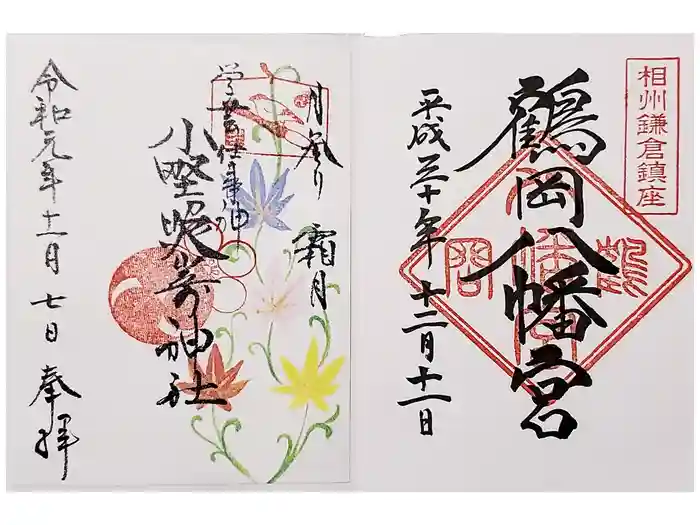 相州鎌倉鎮座
鶴岡八幡宮
平成三十年十二月十一日
月参り
霜月
学芸仕事神
小野照崎神社
令和元年十一月七日 奉拝